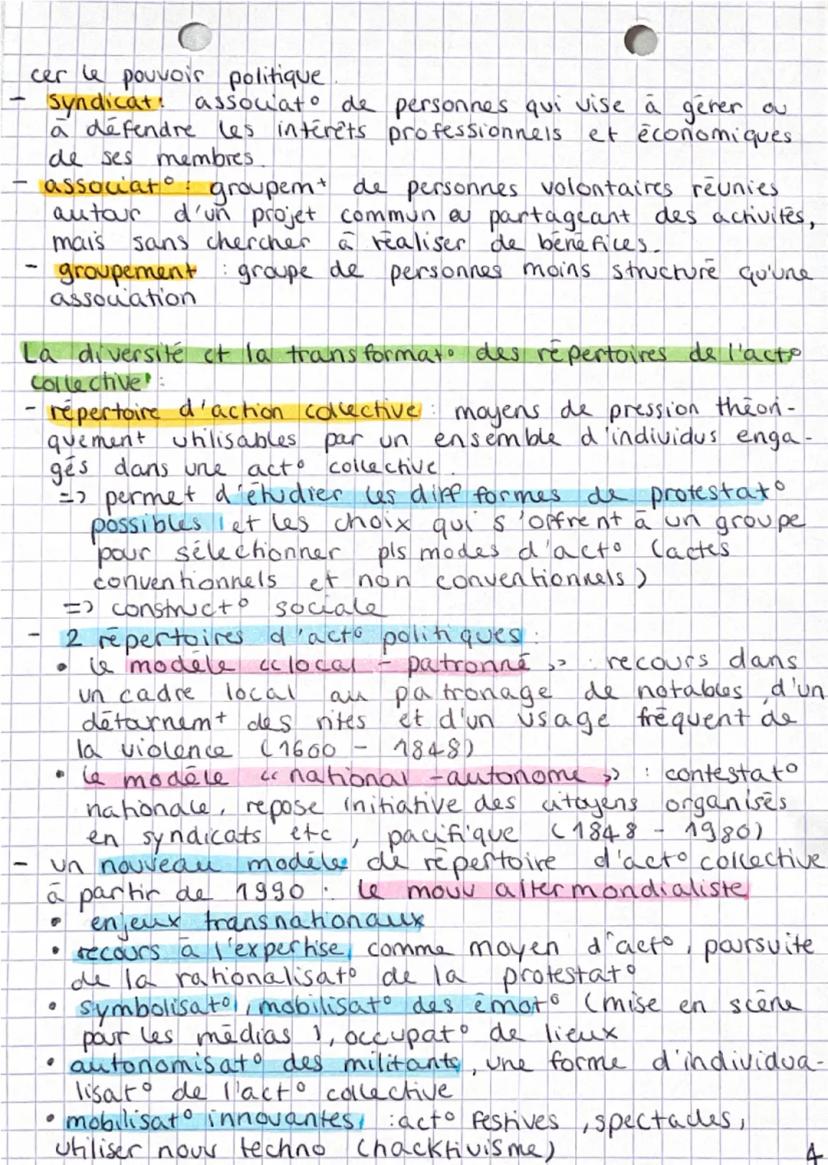 cer le pouvoir politique.
- syndicat : associat° de personnes qui vise à gérer ou
à défendre les intérêts professionnels et économiques
de ses membres.
- associat° : groupem^t de personnes volontaires réunies
autour d'un projet commun ou partageant des activités,
mais sans chercher à réaliser de bénéfices.
- groupement : groupe de personnes moins structuré qu'une
association
La diversité et la transformat° des répertoires de l'act°
collective :
- répertoire d'action collective : moyens de pression théori-
quement utilisables par un ensemble d'individus enga-
gés dans une act° collective.
=> permet d'étudier les diff formes de protestat°
possibles, et les choix qui s'offrent à un groupe
pour sélectionner pls modes d'act° (actes
conventionnels et non conventionnels)
=> construct° sociale
- 2 répertoires d'act° politiques :
• le modèle « local - patronné » : recours dans
un cadre local au patronage de notables, d'un
détournem^t des rites et d'un usage fréquent de
la violence (1600 - 1848)
• le modèle « national - autonome » : contestat°
nationale, repose initiative des citoyens organisés
en syndicats etc, pacifique (1848 - 1980)
- un nouveau modèle de répertoire d'act° collective
à partir de 1990 : le mouv altermondialiste
• enjeux transnationaux
• recours à l'expertise, comme moyen d'act°, poursuite
de la rationalisat° de la protestat°
• symbolisat°, mobilisat° des émot° (mise en scène
pour les médias), occupat° de lieux
• autonomisat° des militants, une forme d'individua-
lisat° de l'act° collective
• mobilisat° innovantes, : act° festives, spectacles,
utiliser nouv techno (hacktivisme)
4